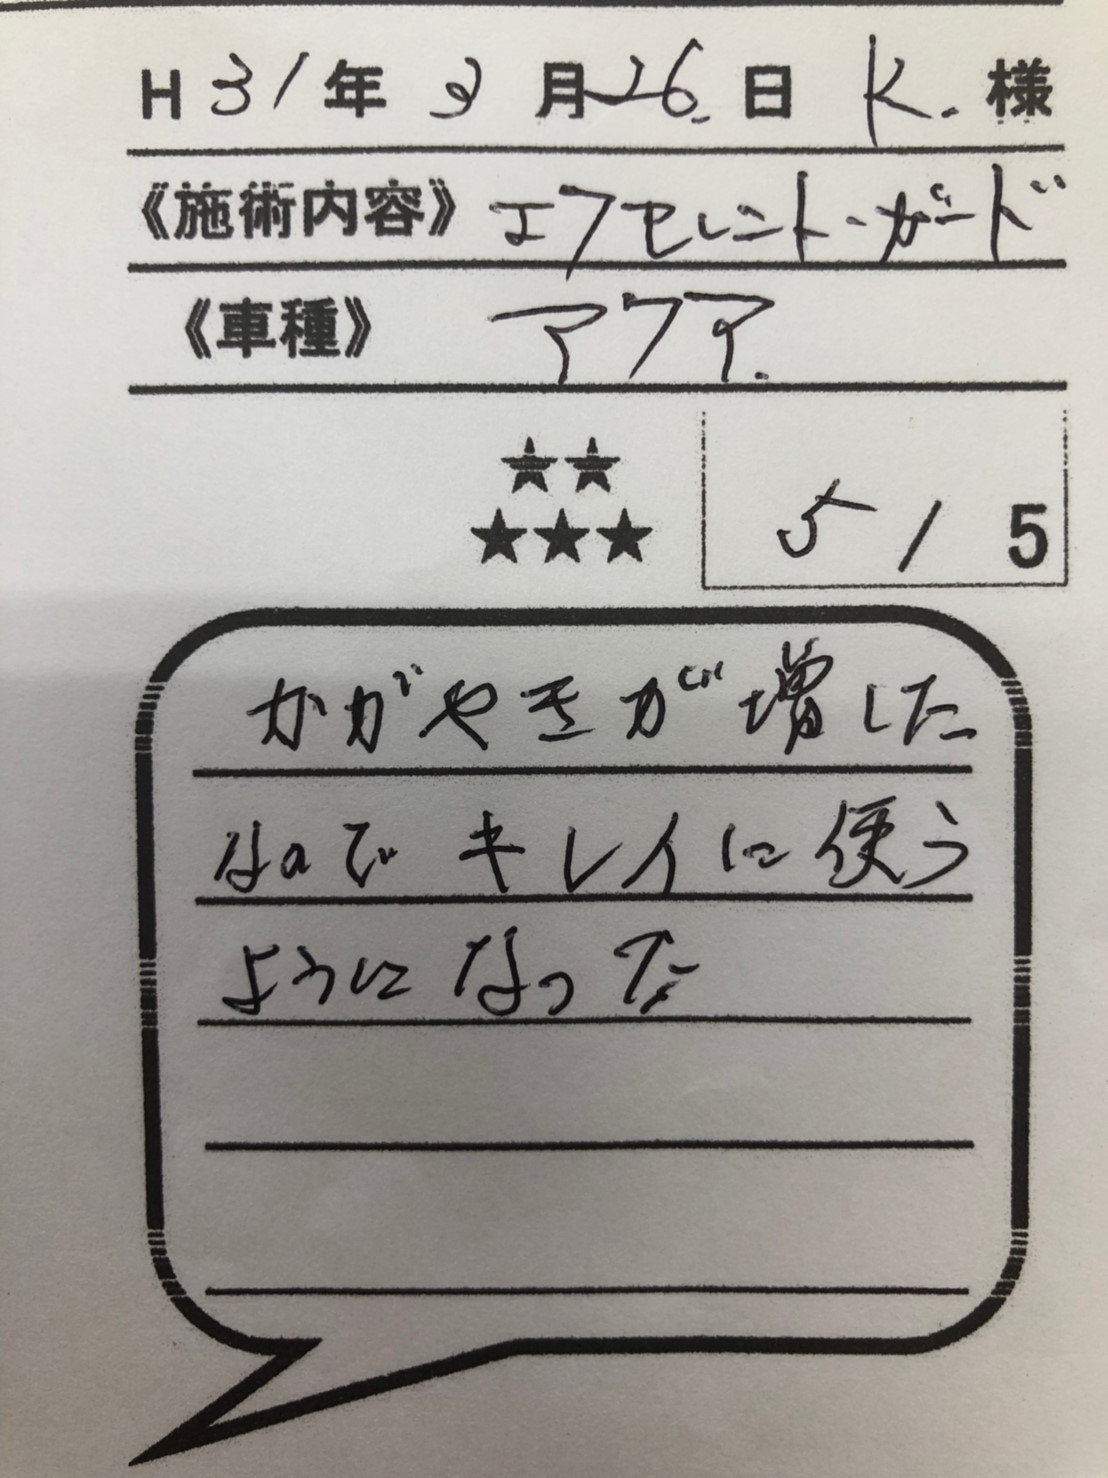 H 31年 3月26日 K.様
《施術内容》 エクセレント・ガード
《車種》 アクア.
★★
★★★ 5 / 5
かがやきが増した
なのでキレイに使う
ようになった